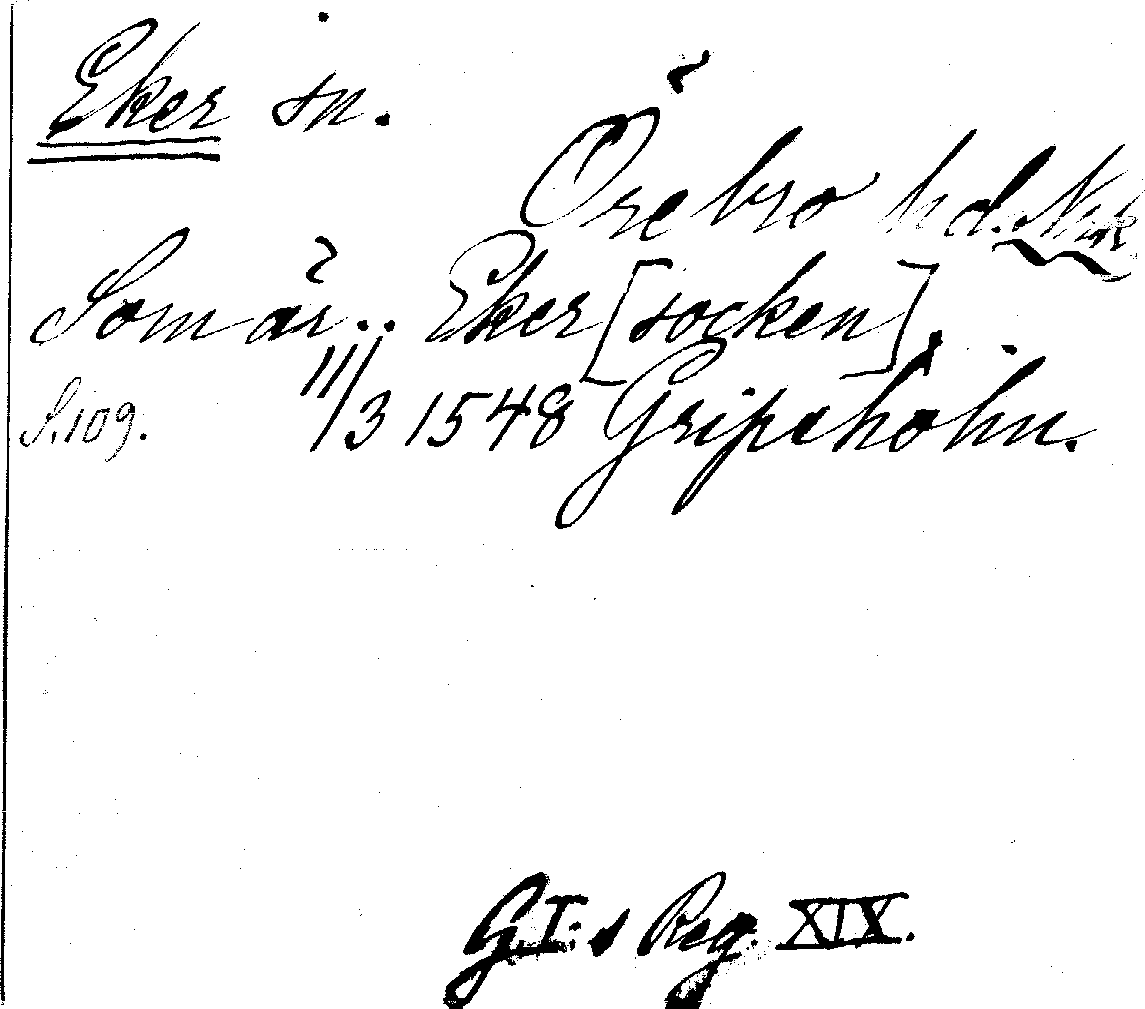 Eker sn.
Örebro hd. Närk
Som är.. Eker [socken].
S. 109. 11/3 1548 Gripsholm.
G.I:s Reg. XIX.